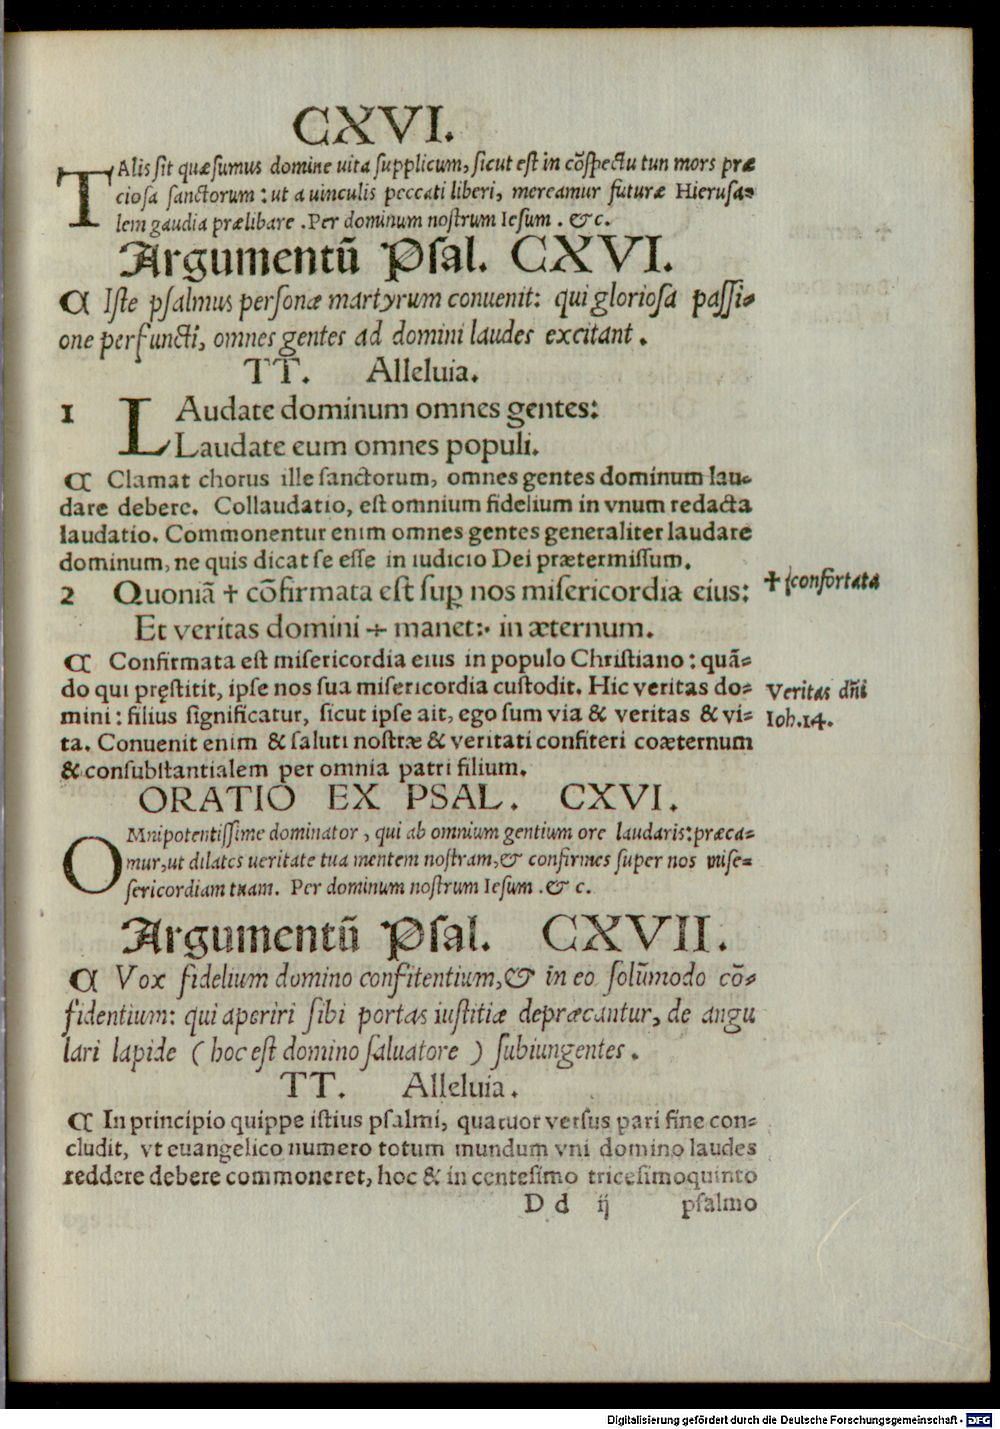 CXVI.
TAlis sit quæsumus domine uita supplicum, sicut est in cōspectu tun mors præ
ciosa sanctorum : ut a uinculis peccati liberi, mereamur futuræ Hierusa-
lem gaudia prælibare . Per dominum nostrum Iesum . & c.
Argumentū Psal. CXVI.
¶ Iste psalmus personæ martyrum conuenit: qui gloriosa passi-
one perfuncti, omnes gentes ad domini laudes excitant .
TT. Alleluia.
1 LAudate dominum omnes gentes:
Laudate eum omnes populi.
¶ Clamat chorus ille sanctorum, omnes gentes dominum lau-
dare debere. Collaudatio, est omnium fidelium in vnum redacta
laudatio. Commonentur enim omnes gentes generaliter laudare
dominum, ne quis dicat se esse in iudicio Dei prætermissum.
2 Quoniā ✝ cōfirmata est suꝑ nos misericordia eius: ✝ ſconfortata
Et veritas domini ÷ manet:· in æternum.
¶ Confirmata est misericordia eius in populo Christiano : quā-
do qui pręstitit, ipse nos sua misericordia custodit. Hic veritas do- Veritas dñi
mini : filius significatur, sicut ipse ait, ego sum via & veritas & vi- Ioh.14.
ta. Conuenit enim & saluti nostræ & veritati confiteri coæternum
& consubstantialem per omnia patri filium.
ORATIO EX PSAL. CXVI.
OMnipotentissime dominator , qui ab omnium gentium ore laudaris: præca-
mur, ut dilates ueritate tua mentem nostram, & confirmes super nos mise-
sericordiam tuam. Per dominum nostrum Iesum . & c.
Argumentū Psal. CXVII.
¶ Vox fidelium domino confitentium, & in eo solūmodo cō-
fidentium: qui aperiri sibi portas iustitiæ depræcantur, de angu
lari lapide ( hoc est domino saluatore ) subiungentes .
TT. Alleluia.
¶ In principio quippe istius psalmi, quatuor versus pari fine con-
cludit, vt euangelico numero totum mundum vni domino laudes
reddere debere commoneret, hoc & in centesimo tricesimoquinto
D d ij psalmo
Digitalisierung gefördert durch die Deutsche Forschungsgemeinschaft - DFG